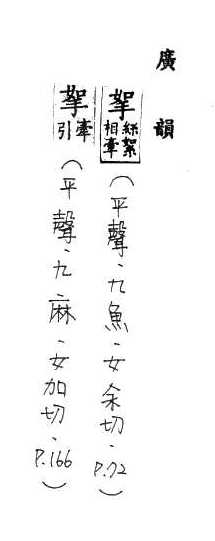 廣韻
挐 絲絮相牽 (平聲、九魚、女余切、P.72)
挐 牽引 (平聲、九麻、女加切、P.166)